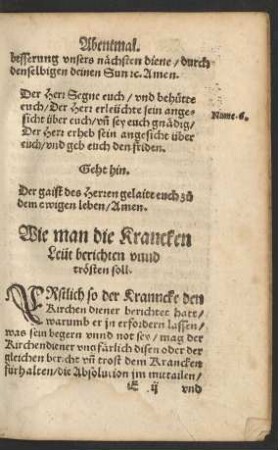 Abentmal.
besserung vnsers nächsten diene/durch
denselbigen deinen Sun ꝛc. Amen.
Der Herr Segne euch/vnd behütte
euch/Der Herr erleüchte sein ange-
sicht über euch/vñ sey euch gnädig/
Der Herr erheb sein angesicht über
euch/vnd geb euch den friden.
Nume. 6.
Geht hin.
Der gaist des Herren gelaite euch zů
dem ewigen leben/Amen.
Wie man die Krancken
Leüt berichten vnnd
trösten soll.
ERstlich so der Kranncke den
Kirchen diener berichtet hatt/
warumb er jn erfordern lassen/
was sein begern vnnd not sey/mag der
Kirchendiener vngfärlich disen oder der
gleichen bericht vñ trost dem Krancken
fürhalten/die Absolution jm mittailen/
E ij vnd